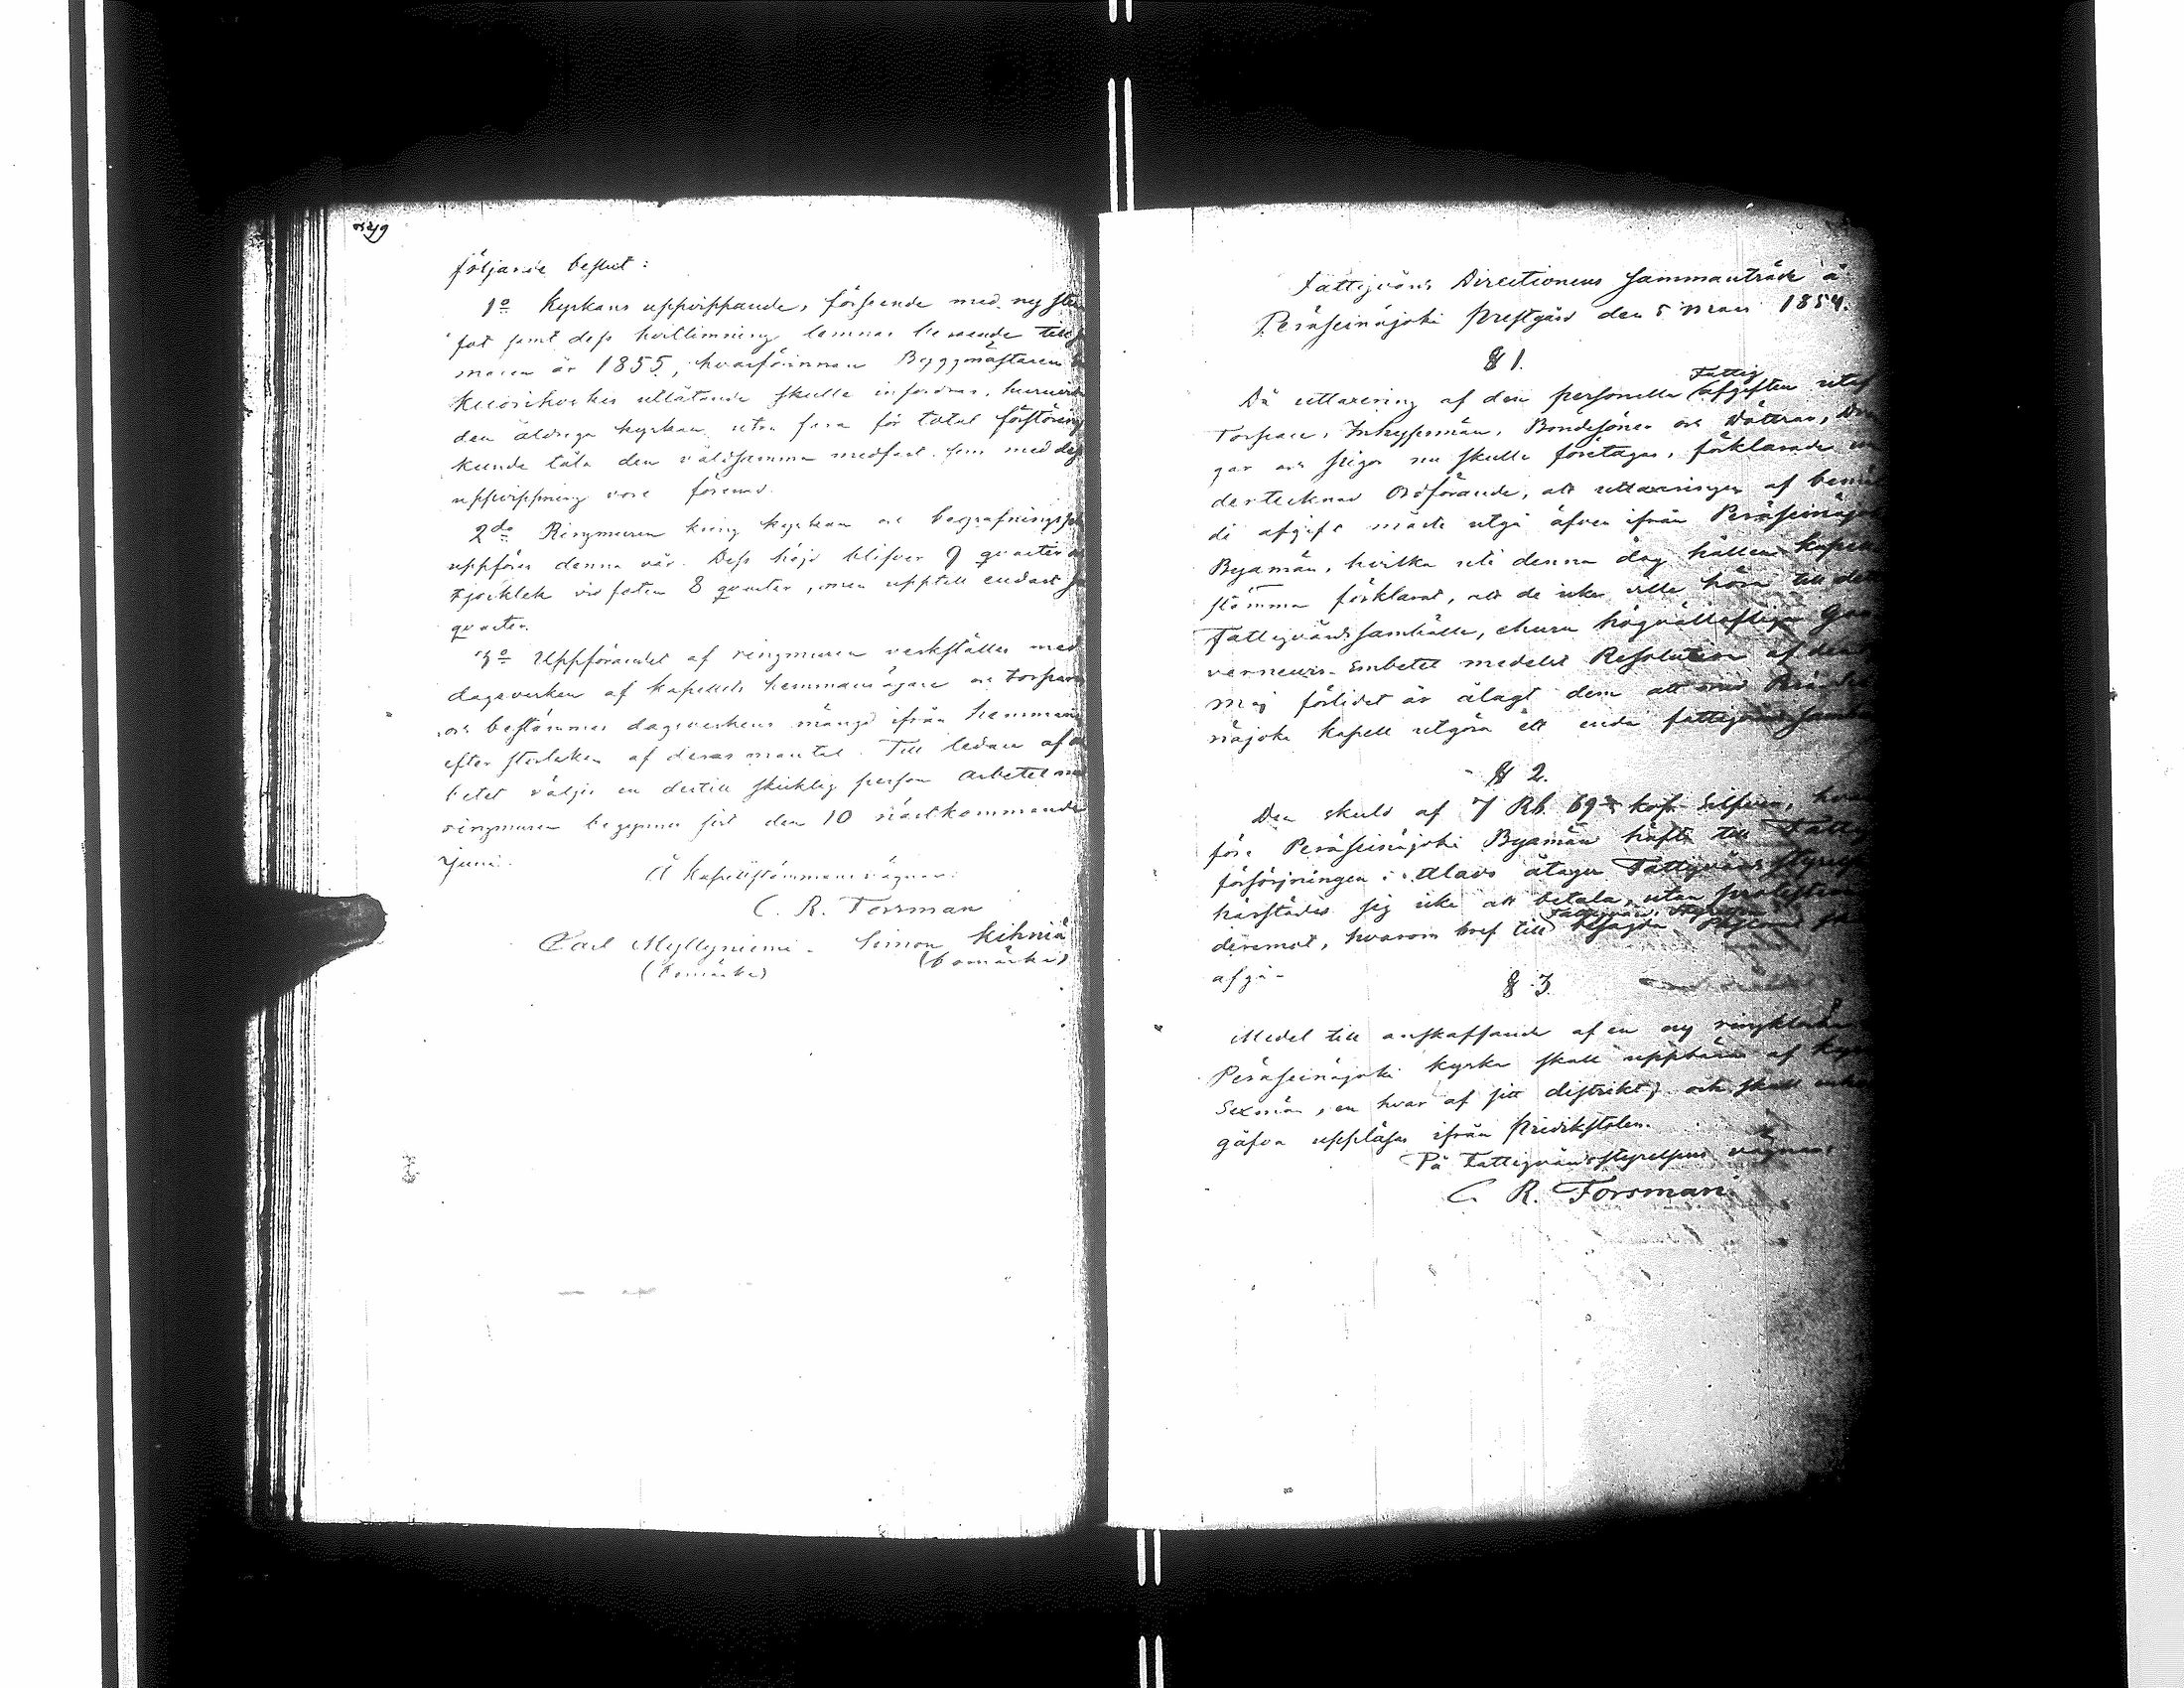 följande beslut:
1o Kyrkans uppvippande, förseende med ny sten
fot samt dess hvitlimning lemnas beroende till
maren år 1855, hvarförinnan Byggmästaren
Kuorikoskis utlåtande skulle infordras, huruvida
den åldriga kyrkan utan fara för total förstöring
kunde tåla den våldsamma medfart, som med dess
uppvippning vore förenad.
2do Ringmuren kring kyrkan och begrafningspl
uppföres denna vår. Dess höjd blifver 9 quarter
tjocklek vid foten 8 quarter, men upptill endast
quarter.
3o Uppförandet af ringmuren verkställes med
dagsverken af kapellets hemmansägare och torpare
och bestämmes dagsverkens mängd ifrån hemmanen
efter storleken af deras mantal. Till ledare af
betet väljes en dertill skicklig person Arbetet
ringmuren begynnes sist den 10 nästkommande
Juni.
Å Kapellstämmans vägnar:
C. R. Forsman
Carl Myllyniemi. Simon Kihniä
(bomärke) (bomärke)
Fattigvårds Directionens sammanträde å
Peräseinäjoki Prestgård den 5 Mars 1854.
§ 1.
Då uttaxering af den personella Fattig afgiften utaf
Torpare, Inhysesmän, Bondesöner och Döttrar, Drän
gar och Pigor nu skulle företagas, förklarade un
dertecknad Ordförande, att uttaxeringen af bemäl
de afgift måste utgå äfven ifrån Peräseinäjoki
Byamän, hvilka uti denna dag hållen Kapell
stämma förklarat, att de icke ville höra till detta
Fattigvårdssamhälle, ehuru högvälloflige Gou
verneurs-Embetet medelst Resolution af den
Maj förlidet år ålagt dem att med Peräsei
näjoki Kapell utgöra ett enda fattigvårdssamhä
§ 2.
Den skuld af 7 Rb. 69 kop. Silfver, hvar
före Peräseinäjoki Byamän häfta till Fattig
försörjningen i Alavo åtager Fattigvårdsstyrelse
härstädes sig icke att betala, utan protesterar
deremot, hvarom bref till Fattigvårds Styrelsen
afgå.
§ 3
Medel till anskaffande af en ny ringklocka
Peräseinäjoki kyrka skall uppbäras af Kyrk
Sexmän, en hvar af sitt distrikt, och skall
gåfva uppläsas ifrån Predikstolen.
På Fattigvårdsstyrelsens vägnar:
C. R. Forsman